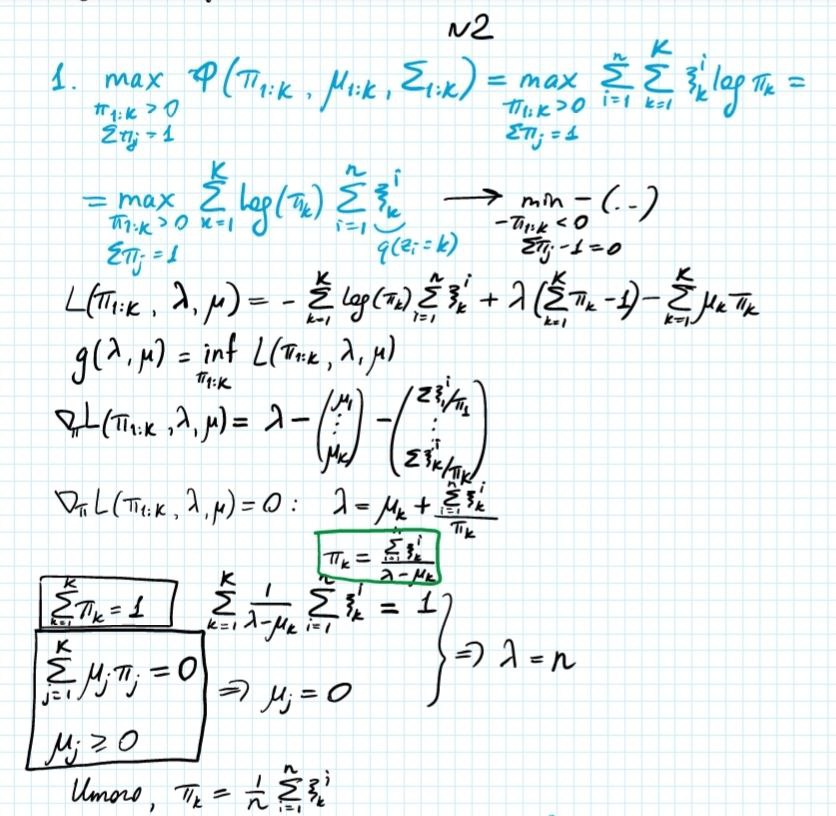 №2
1. max_{π_{1:K} > 0, Σπ_j = 1} Φ(π_{1:K}, μ_{1:K}, Σ_{1:K}) = max_{π_{1:K} > 0, Σπ_j = 1} Σ_{i=1}^{n} Σ_{k=1}^{K} ξ_k^i log π_k =
= max_{π_{1:K} > 0, Σπ_j = 1} Σ_{k=1}^{K} log(π_k) Σ_{i=1}^{n} ξ_k^i → min_{-π_{1:K} < 0, Σπ_j - 1 = 0} - (...)
q(z_i = k)
L(π_{1:K}, λ, μ) = - Σ_{k=1}^{K} log(π_k) Σ_{i=1}^{n} ξ_k^i + λ(Σ_{k=1}^{K} π_k - 1) - Σ_{k=1}^{K} μ_k π_k
g(λ, μ) = inf_{π_{1:K}} L(π_{1:K}, λ, μ)
∇_π L(π_{1:K}, λ, μ) = λ - (μ_1 ⋮ μ_K) - (Σξ_1^i/π_1 ⋮ Σξ_K^i/π_K)
∇_π L(π_{1:K}, λ, μ) = 0 : λ = μ_k + Σ_{i=1}^{n} ξ_k^i / π_k
π_k = Σ_{i=1}^{n} ξ_k^i / (λ - μ_k)
Σ_{k=1}^{K} π_k = 1 Σ_{k=1}^{K} 1/(λ - μ_k) Σ_{i=1}^{n} ξ_k^i = 1
Σ_{j=1}^{K} μ_j π_j = 0 ⇒ μ_j = 0 } ⇒ λ = n
μ_j ≥ 0
Итого, π_k = 1/n Σ_{i=1}^{n} ξ_k^i